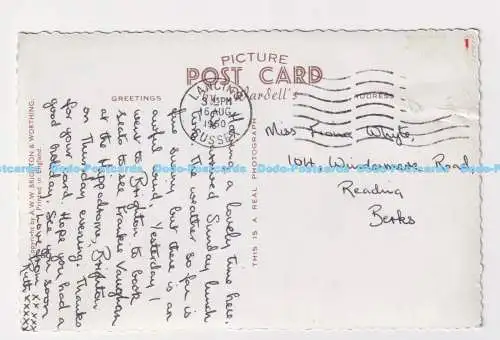 PICTURE
POST CARD
Wardell's
GREETINGS
ADDRESS
LANCING
3:15PM
16 AUG
1960
SUSSEX
Having a lovely time here.
Arrived Sunday lunch
time. The weather so far is
fine sunny, but there is an
awful wind. Yesterday I
went to Brighton to book
seats to see Frankie Vaughan
at the Hippodrome, Brighton
on Thursday evening. Thanks
for your card. Hope you had a
good holiday. See you soon
love from xxxxx
Ruth xxxxx
Miss Whyte,
104, Windermere Road
Reading
Berks
THIS IS A REAL PHOTOGRAPH
Copyright by A.W.W. BRIGHTON & WORTHING.
Printed in England
Dodo-Postcards Dodo-Postcards Dodo-Postcards Dodo-Postcards Dodo-Postcards